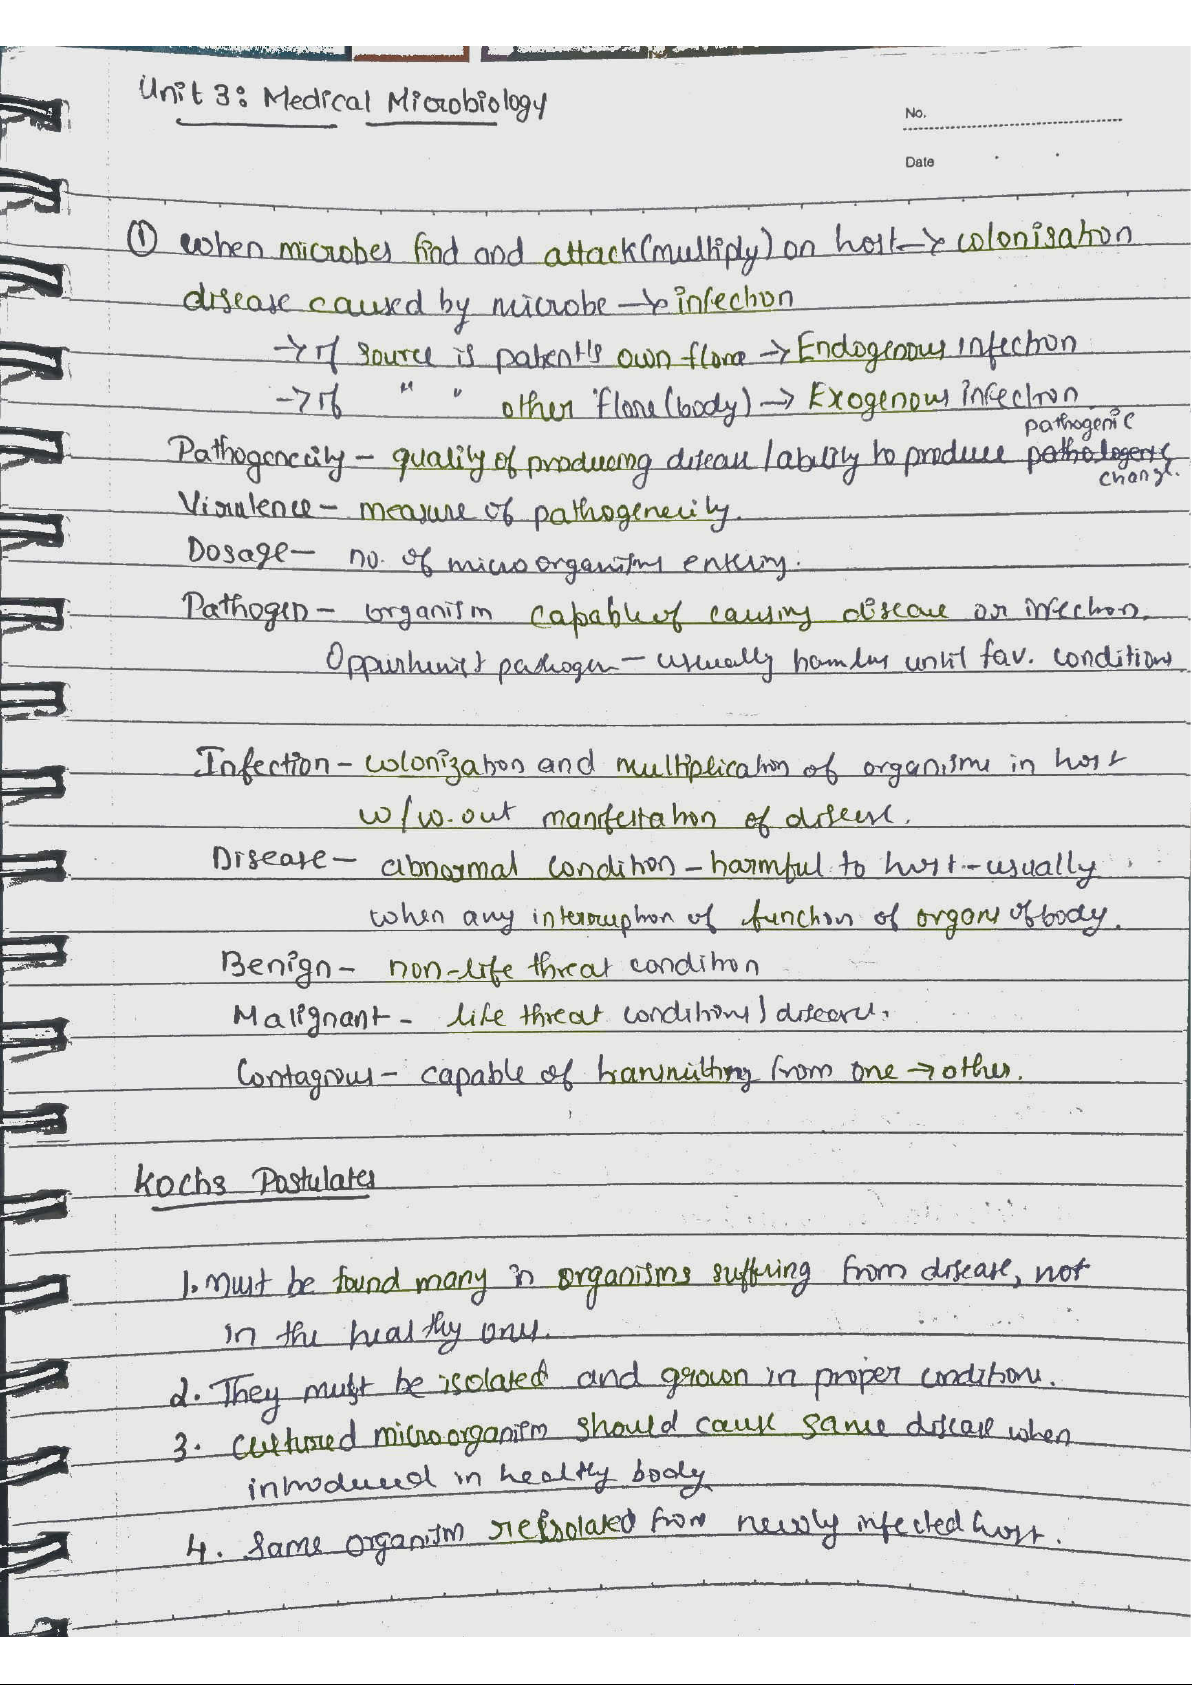 Unit 3: Medical Microbiology
No.
Date
① when microbes find and attack(multiply) on host → colonisation
disease caused by microbe → infection
→ if source is patient's own flora → Endogenous infection
→ if " " other flora (body) → Exogenous infection
Pathogenecity - quality of producing disease / ability to produce pathologenic pathogenic change.
Virulence - measure of pathogenecity.
Dosage - no. of microorganisms entering.
Pathogen - organism capable of causing disease or infection.
Oppurtunist pathogen - usually harmless until fav. conditions
Infection - colonization and multiplication of organisms in host
w/w.out manifestation of disease.
Disease - abnormal condition - harmful to host - usually
when any interruption of function of organs of body.
Benign - non-life threat condition
Malignant - life threat conditions/disease.
Contagious - capable of transmitting from one → other.
Kochs Postulates
1. Must be found many in organisms suffring from disease, not
in the healthy ones.
2. They must be isolated and grown in proper conditions.
3. Cultured microorganism should cause same disease when
introduced in healthy body
4. Same organism reisolated from newly infected host.